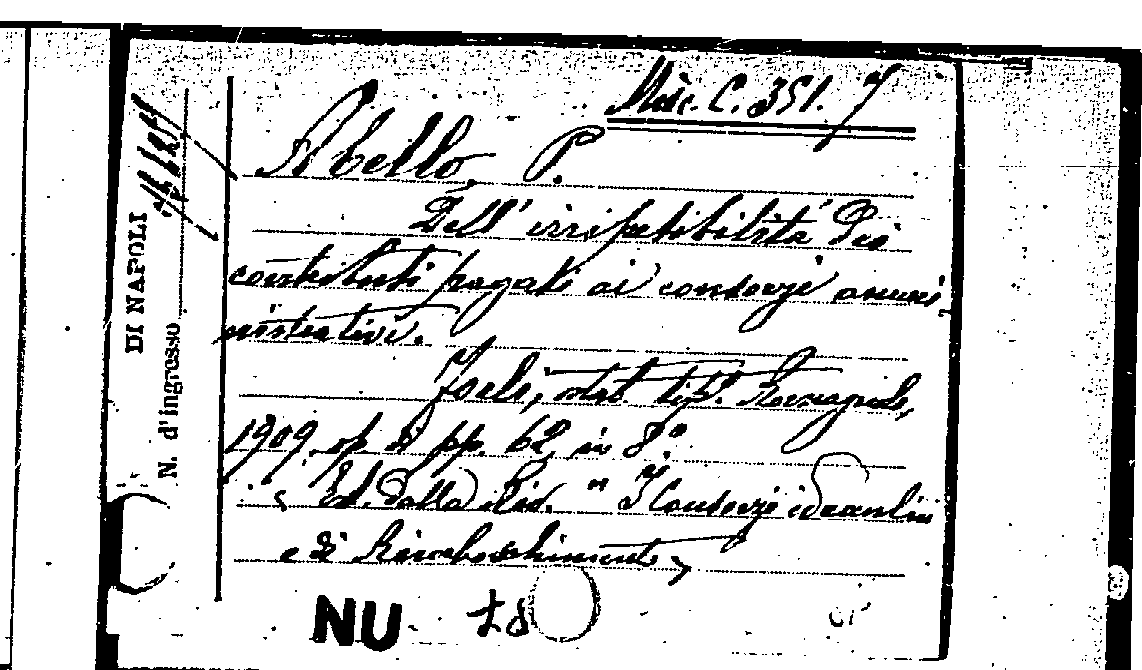 Misc. C. 351. 7
Abello, P.
Dell' irripetibilità dei
contributi pagati ai consorzi ammi
nistrativi.
Forlì, stab. tip. Romagnolo,
1909. op di pp. 62, in 8°.
Est. dalla Riv. " I Consorzi idraulici
e di Rimboschimento
NU 18
DI NAPOLI
N. d'ingresso